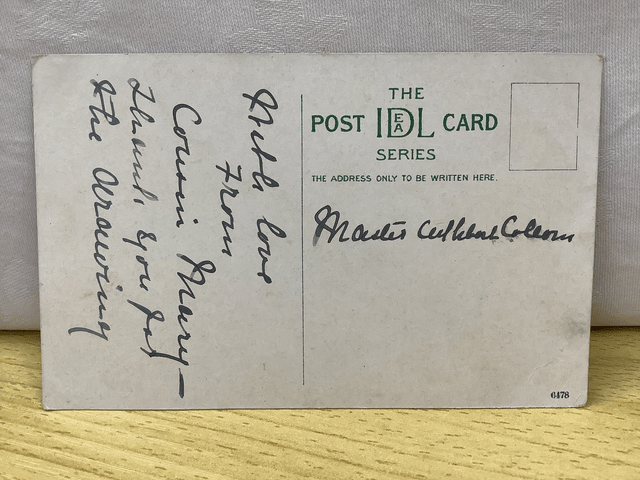 With love
From
Cousin Mary—
Thank you for
the drawing
THE
POST IDEAL CARD
SERIES
THE ADDRESS ONLY TO BE WRITTEN HERE.
Master Cuthbert
6478